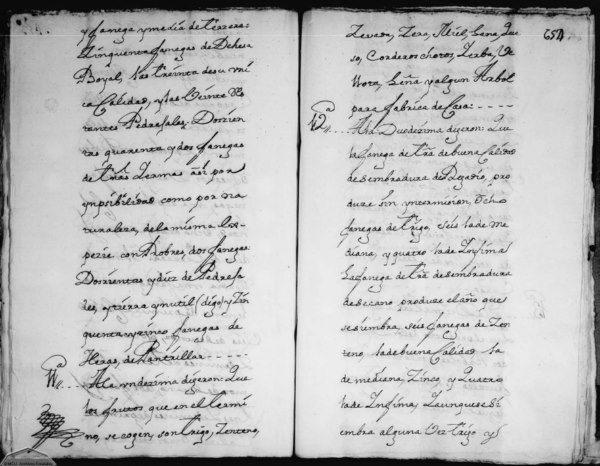 y fanega y media de tierra:
Zinquenta fanegas de Dehesa
Boyal, las treinta de su uni
ca Calidad, y las Veinte Ro
tantes Pedrasales: Docien
tas quarenta y dos fanegas
de trra Yerma asi por
ynposibilidad como por na
turaleza, de la misma es-
pezie con Robres, dos fanegas
Dorrientas y diez de Pedrega
les, y tierra ynutil (digo) y Zin
quenta y zinco fanegas de
Heras, de Pantrillar
11a A la undezima dijeron: Que
los frutos que en el termi
no, se cogen, son trigo, Zenteno,
654
Zevada, Zera, Miel, Lana, Que
so, Corderos chotos, Yerba, Ve
llota, Leña y algun Arbol
para fabrica de Casa:
12a A la Duodezima dijeron: Que
la fanega de trra de buena Calidad
de sembradura de Regadio, pro
duze sin yntermision, Ocho
fanegas de trigo, seis la de me
diana, y quatro la de Ynfima
La fanega de trra de sembradura
de secano, produze el año que
se siembra, seis fanegas de Zen
teno, la de buena Calidad, la
de mediana, Zinco, y Quatro
la de Ynfima, Y aunque se si
embra alguna Vez trigo y